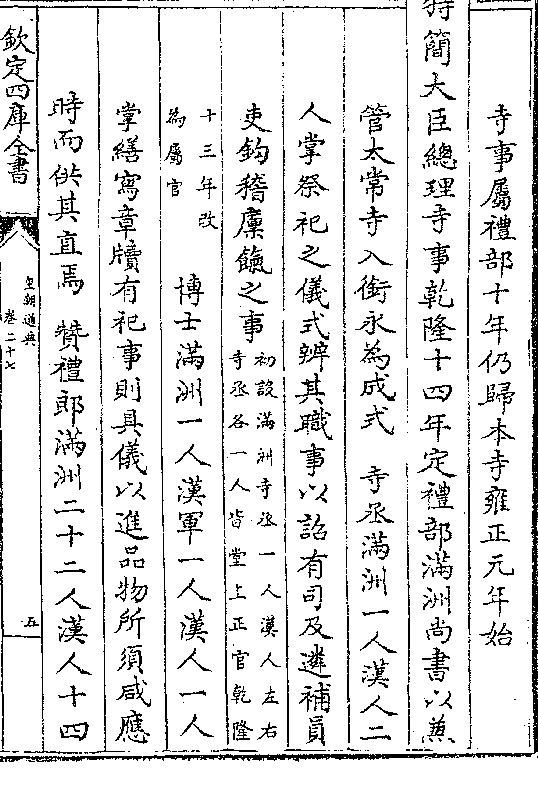 寺事屬禮部十年仍歸本寺雍正元年始
特簡大臣總理寺事乾隆十四年定禮部滿洲尚書以兼
管太常寺入銜永為成式　寺丞滿洲一人漢人二
人掌祭祀之儀式辨其職事以詔有司及遴補員
吏鈎稽廩餼之事初設滿洲寺丞一人漢人左右
寺丞各一人皆堂上正官乾隆
十三年改
為屬官
博士滿洲一人漢軍一人漢人一人
掌繕寫章牘有祀事則具儀以進品物所須咸應
時而供其直焉　贊禮郎滿洲二十二人漢人十四
欽定四庫全書
皇朝通典
卷二十七
五